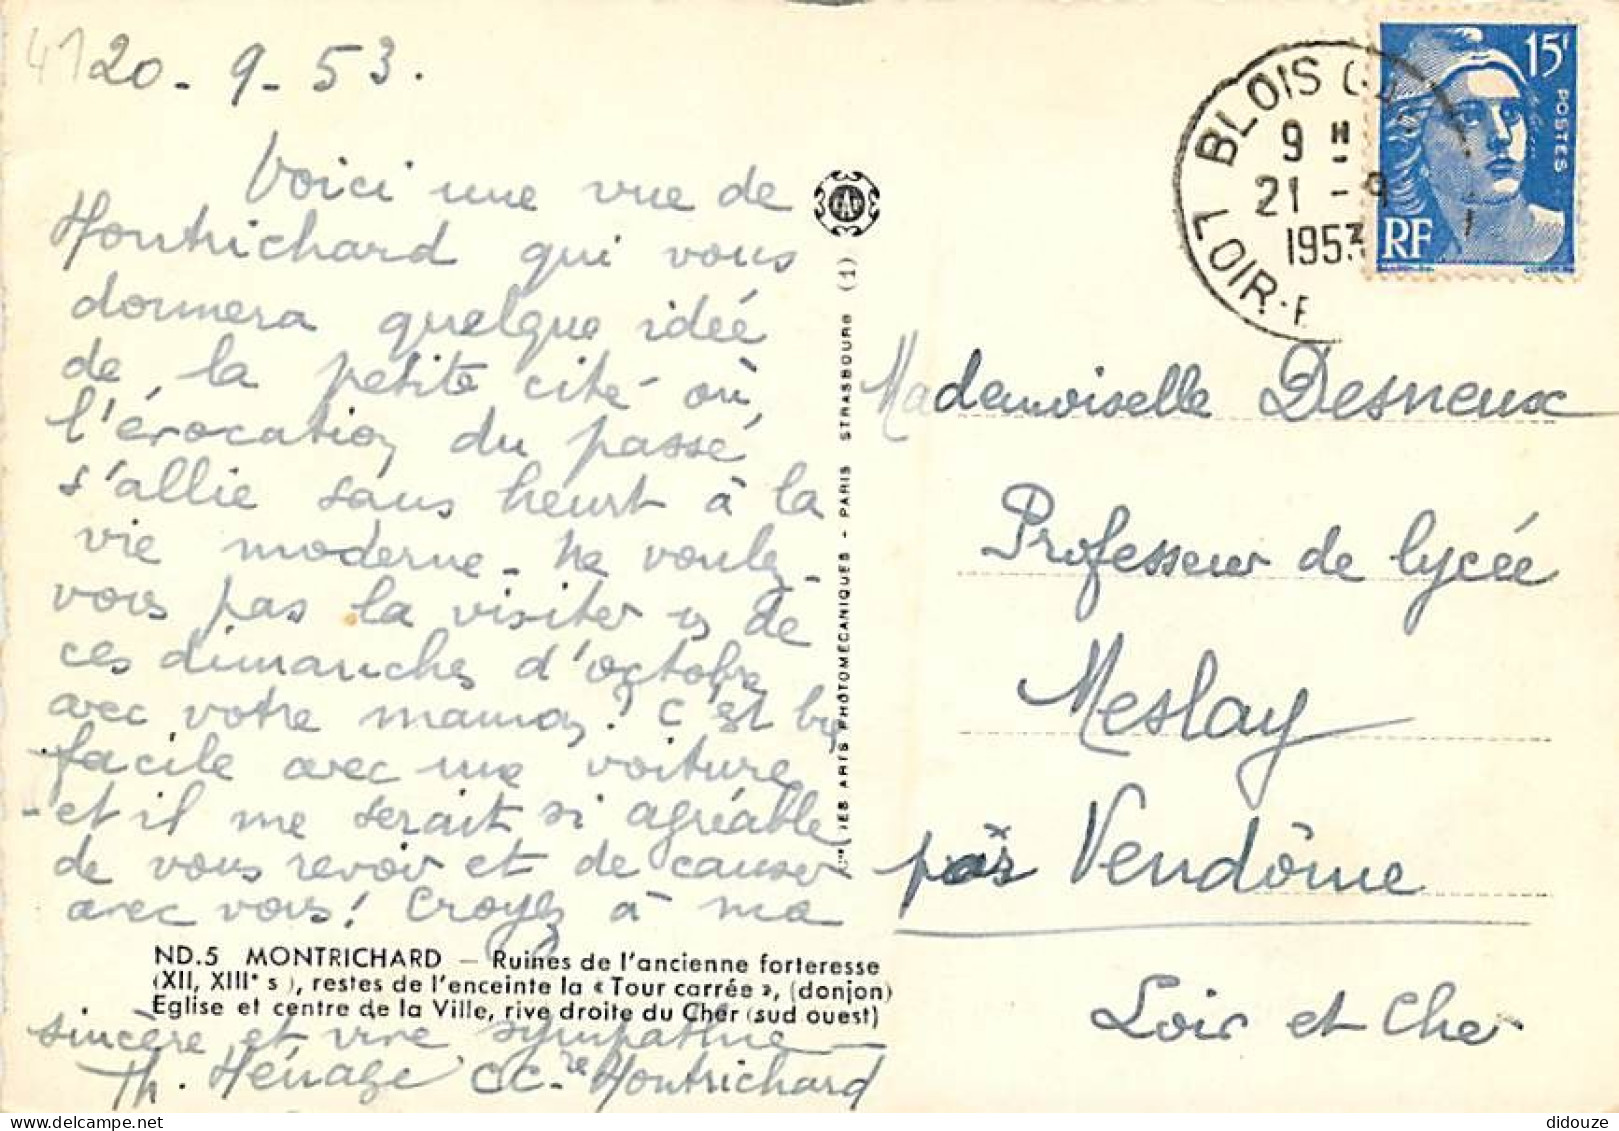 41
20 - 9 - 53.
Voici une vue de
Montrichard qui vous
donnera quelque idée
de la petite cité où
l'évocation du passé
s'allie sans heurt à la
vie moderne - ne voulez-
vous pas la visiter un de
ces dimanches d'octobre
avec votre maman? C'est bien
facile avec une voiture,
- et il me serait si agréable
de vous revoir et de causer
avec vous! Croyez à ma
sincère et vive sympathie -
Th. CC. Montrichard
ND.5 MONTRICHARD — Ruines de l'ancienne forteresse
(XII, XIII• s), restes de l'enceinte la « Tour carrée », (donjon)
Eglise et centre de la Ville, rive droite du Cher (sud ouest)
LES ARTS PHOTOMÉCANIQUES - PARIS STRASBOURG (1)
CAP
BLOIS
9 H
21 - 9
1953
LOIR-
15F
POSTES
RF
Mademoiselle Desneux
Professeur de lycée
Meslay
près Vendôme
Loir et Cher
didouze